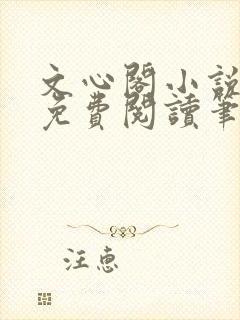 文心閣小說
免費閱讀筆
汪惠